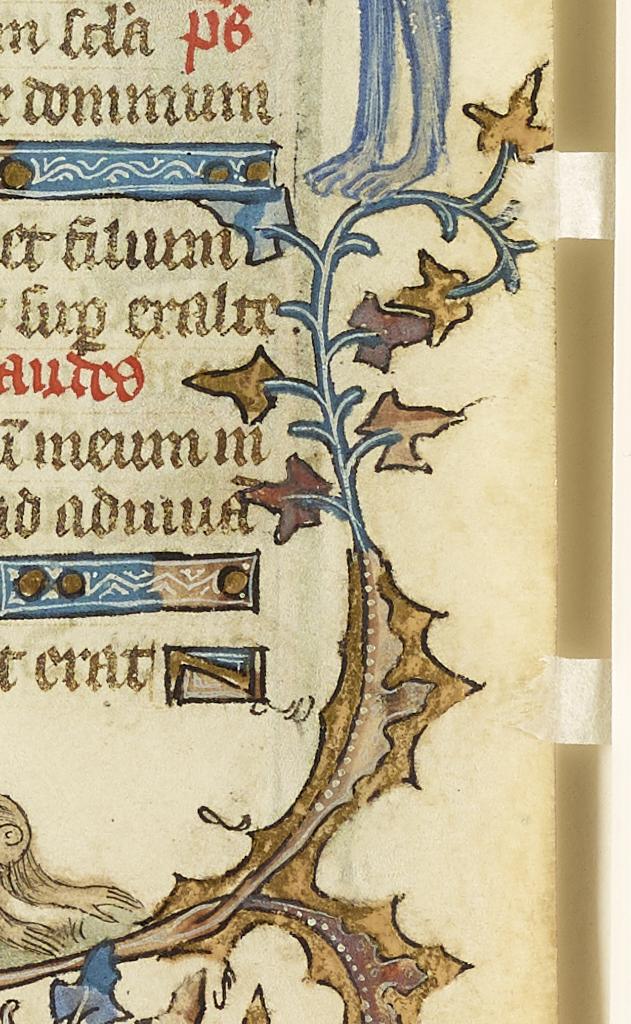 m scĺa p̄s
e dominum
et filium
sup eralte
audes
ū meum in
id adiuuā
t erat